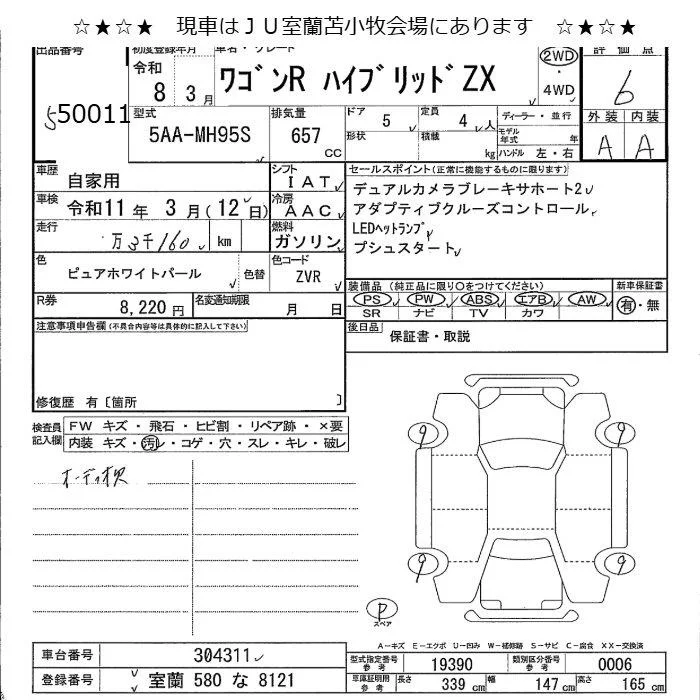 ☆★☆★　現車はＪＵ室蘭苫小牧会場にあります　☆★☆★
出品番号 初度登録年月 車名・グレード 2WD・4WD 評価点
50011 令和 8年 3月 ワゴンR ハイブリッドZX 6
型式 5AA-MH95S 排気量 657 CC
ドア 5 定員 4人 形状 積載 kg
ディーラー・並行 モデル年式 年 ハンドル 左・右
外装 内装
A A
車歴 自家用 シフト IAT
車検 令和11年 3月(12日) 冷房 AAC
走行 万3千160 km 燃料 ガソリン
色 ピュアホワイトパール 色替 色コード ZVR
R券 8,220円 名変通知期限 月 日
セールスポイント(正常に機能するものに限ります)
デュアルカメラブレーキサホート2
アダプティブクルーズコントロール
LEDヘットランプ
プシュスタート
装備品 (純正品に限り○をつけてください) 新車保証書
PS PW ABS エアB AW 有・無
SR ナビ TV カワ
後日品 保証書・取説
注意事項申告欄(不具合内容等は具体的に記入して下さい)
修復歴 有〔箇所 〕
検査員記入欄 FW キズ・飛石・ヒビ割・リペア跡・×要
内装 キズ・汚レ・コゲ・穴・スレ・キレ・破レ
オーディオ欠
9 9
9 9
P
スペア
A-キズ E-エクボ U-凹み W-補修跡 S-サビ C-腐食 XX-交換済
車台番号 304311
登録番号 室蘭 580 な 8121
型式指定番号参考 19390 類別区分番号参考 0006
車庫証明用参考 長さ 339 cm 幅 147 cm 高さ 165 cm